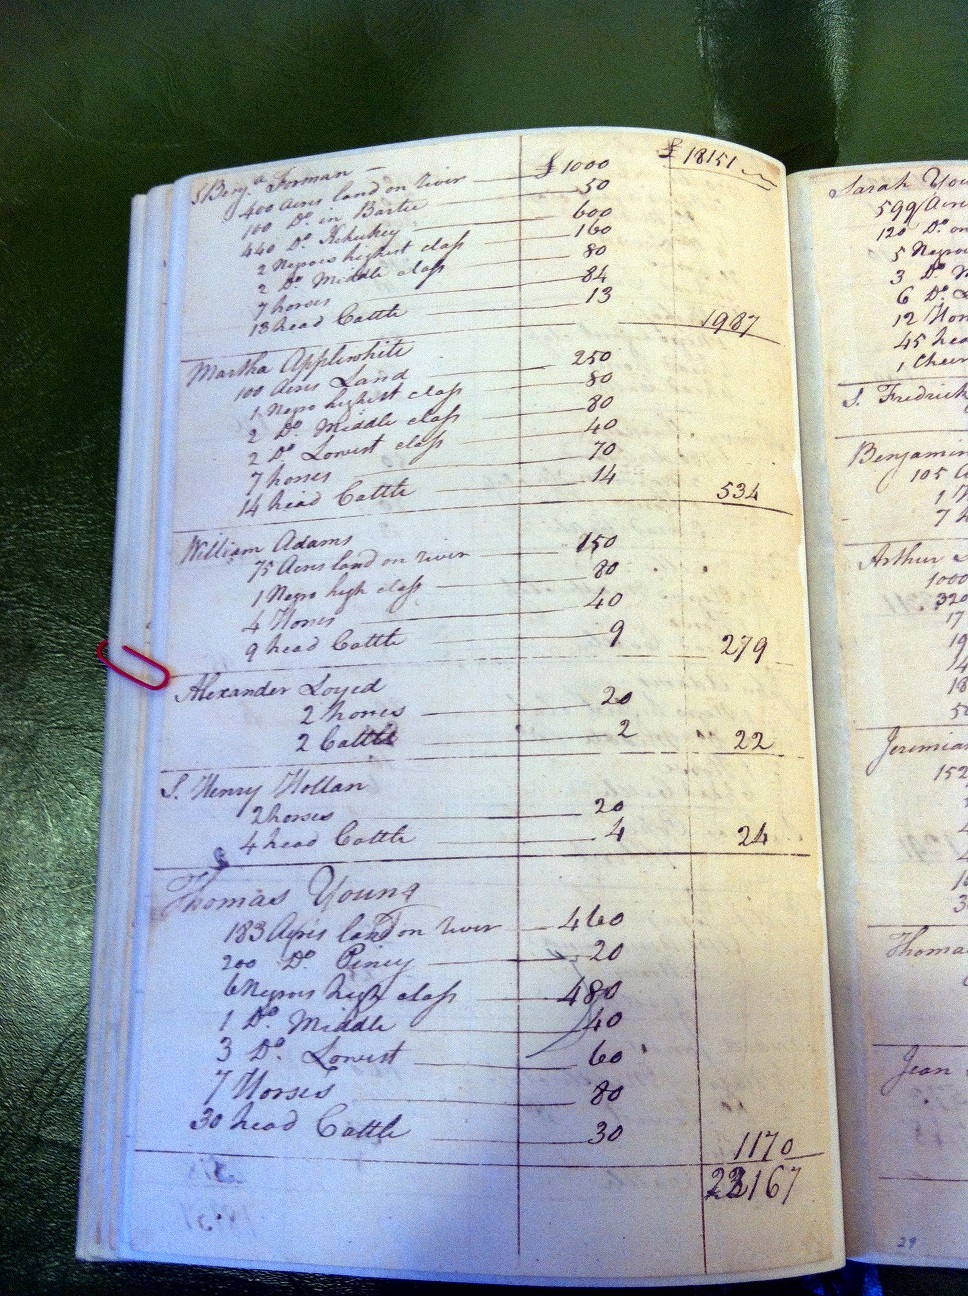 £ 18151
S Benjª Forman —
400 Acres land on river £ 1000
100 Dº in Bartie 50
440 Dº Kehukey 600
2 Negroes highest class 160
2 Dº Middle class 80
7 horses 84
13 head Cattle 13
1987
Martha Applewhite
100 Acres Land 250
1 Negro highest class 80
2 Dº Middle class 80
2 Dº Lowest class 40
7 horses 70
14 head Cattle 14 534
William Adams
75 Acres land on river 150
1 Negro high class 80
4 Horses 40
9 head Cattle 9 279
Alexander Loyed
2 horses 20
2 Cattle 2 22
S. Henry Hollan
2 horses 20
4 head Cattle 4 24
Thomas Young
183 Acres land on river 460
200 Dº Piney 20
6 Negroes high class 480
1 Dº Middle 40
3 Dº Lowest 60
7 Horses 80
30 head Cattle 30
1170
22167
Sarah
599 Acre
120 Dº on
5 Negro
3 Dº
6 Dº
12 Hor
45 hea
1 Cheer
S. Fredrick
Benjamin
105 A
1
7 h
Arthur
1000
320
17
19
14
18
50
Jeremia
152
Thoma
Jean
29